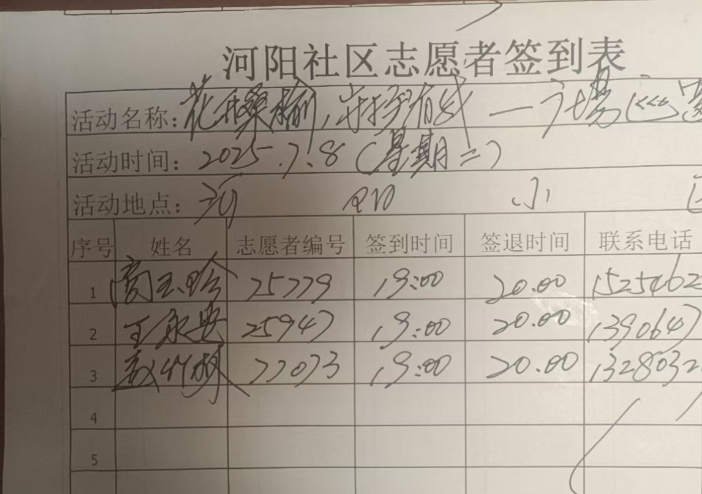 河阳社区志愿者签到表
活动名称: 花样桑榆,守护有我 — 广场巡
活动时间: 2025.7.8(星期二)
活动地点: 河 阳 小 区
序号 姓名 志愿者编号 签到时间 签退时间 联系电话
1 高玉玲 25779 19:00 20.00 1525462
2 王永安 25947 19:00 20.00 1390647
3 赵竹林 77073 19:00 20.00 1328032
4
5